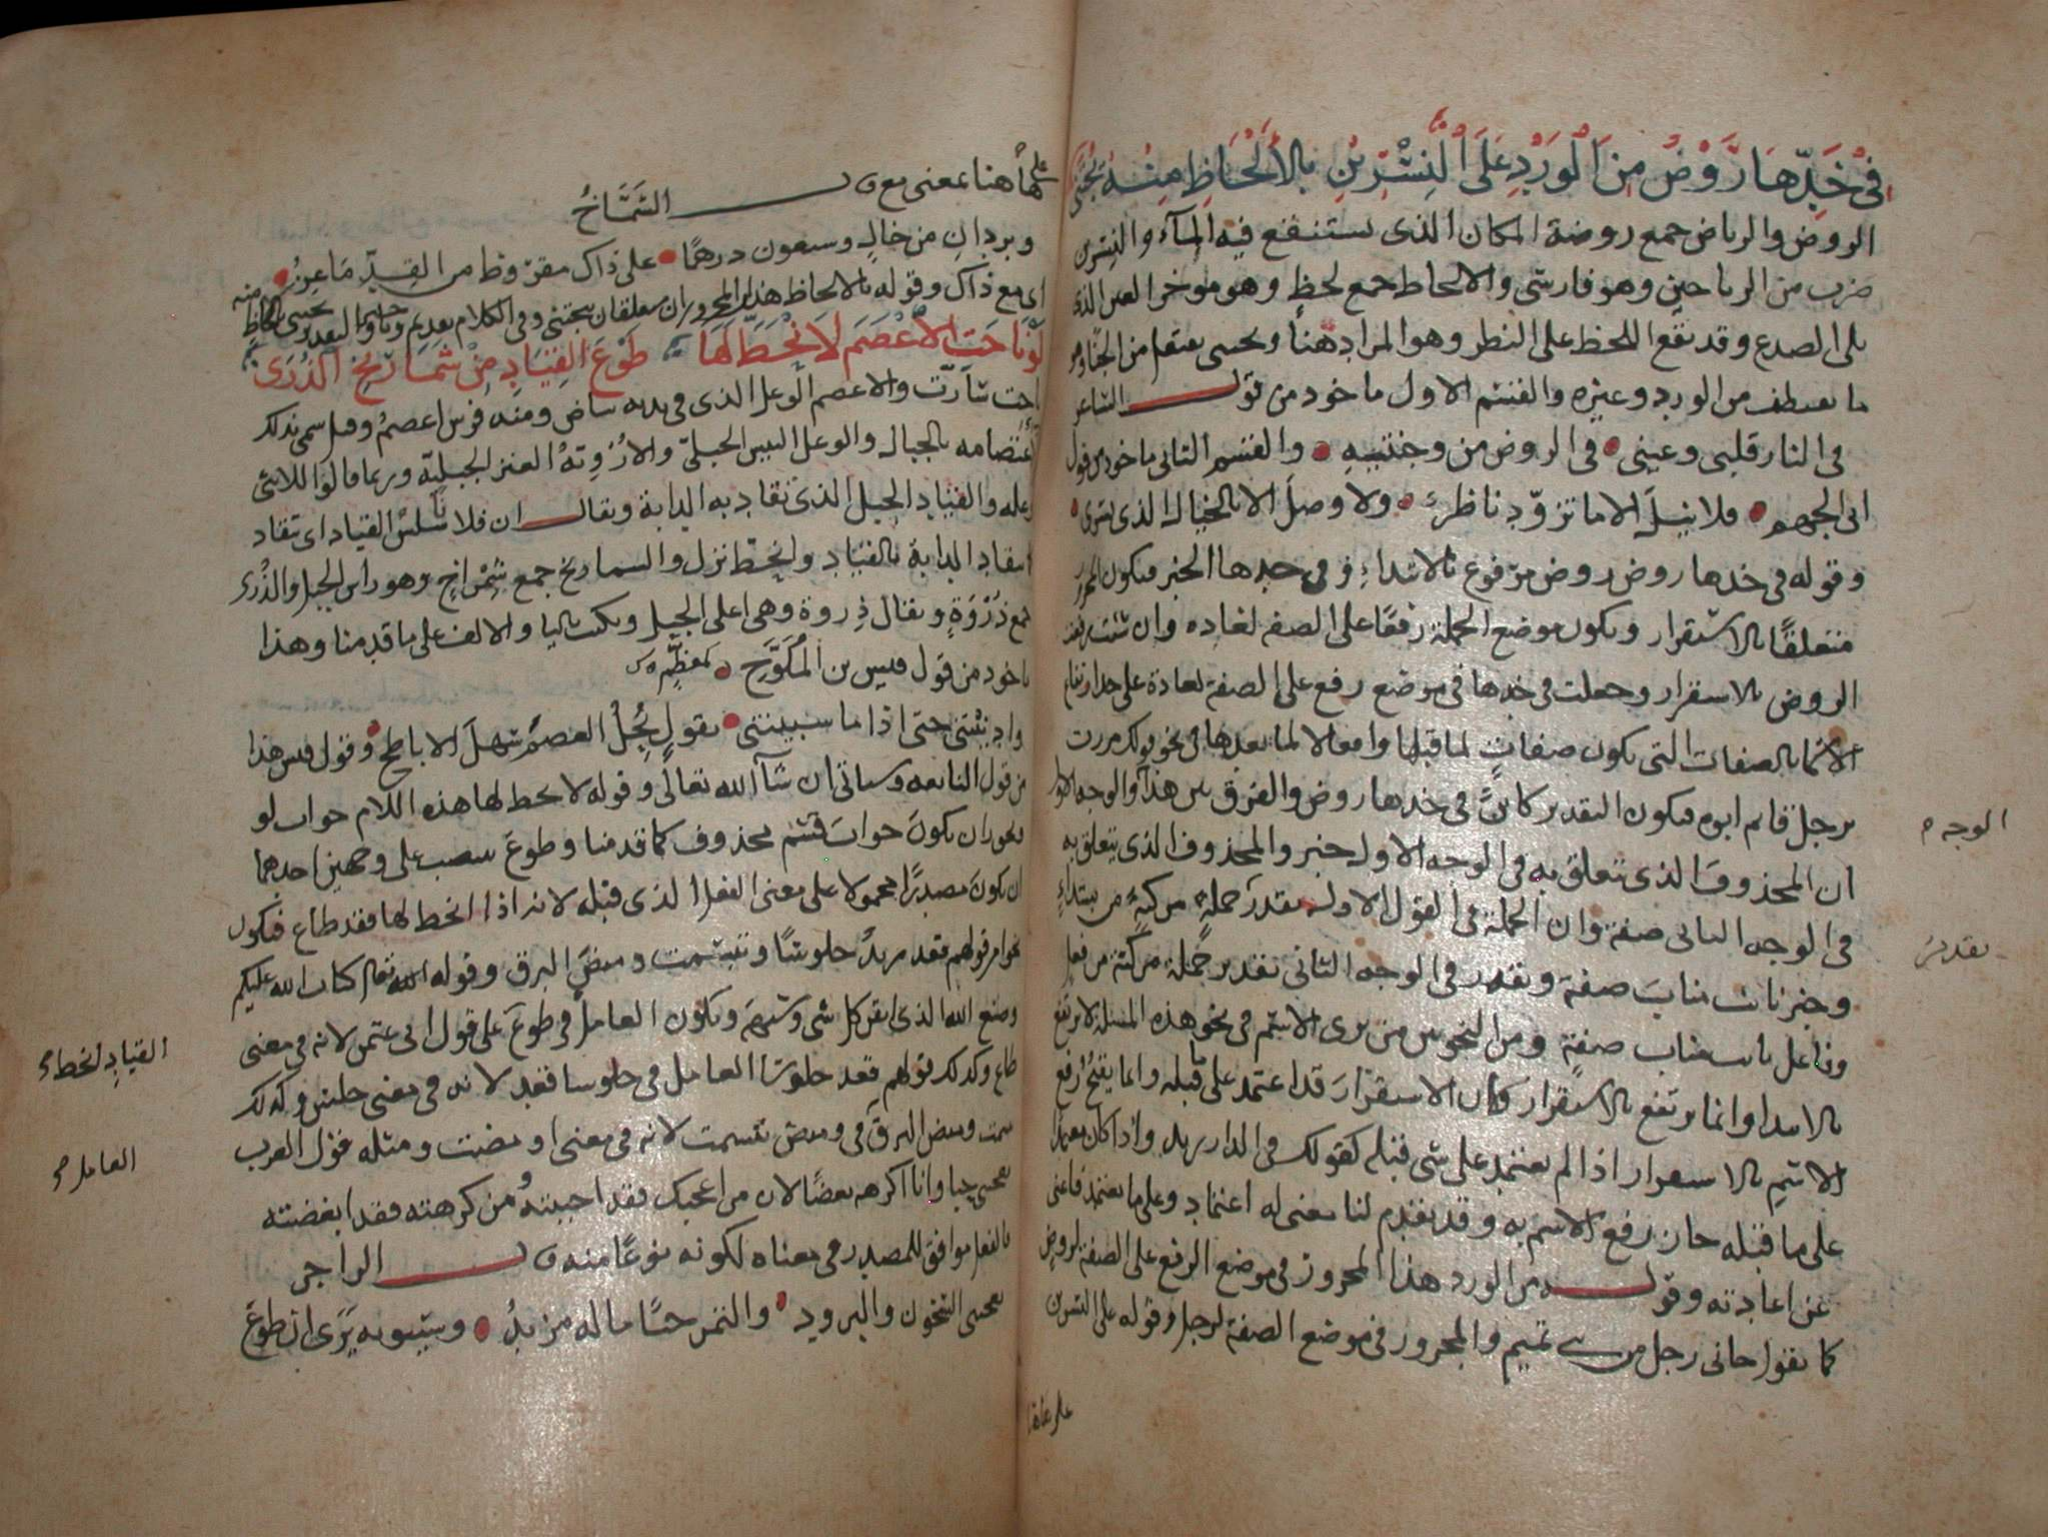 في خَدِّهَا رَوْضٌ مِنَ الْوَرْدِ عَلَى النِّسْرِينِ بِالأَلْحَاظِ مِنْهُ يُجْتَنَى
الروض والرياض جمع روضة المكان الذى يستنقع فيه المآء والنسرين
ضرب من الرياحين وهو فارسى والالحاظ جمع لحظ وهو موخر العين الذى
يلى الصدغ وقد يقع اللحظ على النظر وهو المراد هنا ويجتنى يفتعل من الجنا وهو
ما يقتطف من الورد وغيره والقسم الاول ماخوذ من قول الشاعر
فى النار قلبى وعينى فى الروض من وجنتيه والقسم الثانى ماخوذ من قول
ابى الجهم فلا نيلَ الا ما تزوّد ناظرٌ ولا وصلَ الا بالخيال الذى يسرى
وقوله فى خدها روض روض مرفوع بالابتداءِ وفى خدها الخبر فيكون المجرور
متعلقًا بالاستقرار ويكون موضع الجملة رفعًا على الصفة لغاده وان شئت رفعت
الروض بالاستقرار وجعلت فى خدها فى موضع رفع على الصفة لغادة على حد ارتفاع
الاسما بالصفات التى يكون صفاتٍ لما قبلها وافعالا لما بعدها فى نحو قولك مررت
برجل قايم ابوه فيكون التقدير كاينٌ فى خدها روض والفرق بين هذا والوجه الاول
ان المحذوفَ الذى يتعلق به فى الوجه الاول خبر والمحذوف الذى يتعلق به
فى الوجه الثانى صفة وان الجملة فى القول الاول يقدر جملةً مركبةً من مبتداءٍ
وخبر نابت منابَ صفة ويقدر فى الوجه الثانى تقدير جملة مركبة من فعل
وفاعل نابت مناب صفةٍ ومن النحويين من يرى الاسم فى نحو هذه المسئلة لا يرتفع
بالابتدا وانما يرتفع بالاستقرار لان الاستقرارَ قد اعتمد على ما قبله وانما يقبح رفع
الاسم بالاستقرار اذا لم يعتمد على شى قبله كقولك فى الدار زيد واذا كان معتمدا
على ما قبله جاز رفع الاسم به وقد تقدم لنا معنى له اعتماد وعلى ما يعتمد فاغنى
عن اعادته وقوله من الورد هذا المجرور فى موضع الرفع على الصفة لروض
كما يقول جانى رجل من بنى تميم والمجرور فى موضع الصفة لرجل وقوله على النسرين
الوجه
تقديرَ
على هاهنا
على هاهنا بمعنى مع قال الشَّمَّاخُ
وبردانِ من خالٍ وسبعون درهمًا على ذاك مقروظ من القِدِّ مَاعِزُ
اى مع ذاك وقوله بالالحاظ منه هذان المجروران متعلقان بيجتنى وفى الكلام تقديم وتاخير التقدير يجتنى بالالحاظ منه
لَوْ نَاجَتِ الأَعْصَمَ لَانْحَطَّ لَهَا طَوْعَ القِيَادِ مِنْ شَمَارِيخِ الذُّرَى
ناجت سَارَّت والاعصم الوعل الذى فى يديه بياض ومنه فرس اعصمُ وقيل سمى بذلك
لاعتصامه بالجبال والوعل التيس الجبلىّ والاُرْوِيّةُ العنز الجبليّة وربما قالوا للانثى
وعله والقيادِ الحبل الذى تقاد به الدابة ويقال ان فلانا سَلِسُ القياد اى تنقاد
انقياد الدابة بالقيَادِ وانحطّ نزل والشماريخ جمع شِمْرَاخٍ وهو راس الجبل والذُرى
جمع ذُرْوَةٍ ويقال ذِروة وهى اعلى الجبل ويكتب باليا والالف على ما قدمنا وهذا
ماخوذ من قول قيس بن المُلَوَّحِ كمعظّم
وادنيْتنى حتى اذا ما سبيتنى بقولٍ يُحِلُّ العصمَ سَهلَ الاباطحِ وقول قيس هذا
من قول النابغه وسياتى ان شآ الله تعالى وقوله لانحط لها هذه اللام جواب لو
يجوز ان يكونَ جوابَ قسمٍ محذوف كما قدمنا وطوعَ ينتصب على وجهين احدهما
ان يكونَ مصدرًا محمولا على معنى الفعل الذى قبله لانه اذا انحط لها فقد طاع فيكون
نحوا من قولهم قعد زيدٌ جلوسًا وتبسمت وميضَ البرق وقوله تعالى كتاب الله عليكم
وصنع الله الذى اتقن كل شى وشبهه ويكون العاملُ فى طوعَ على قول ابى عثمن لانه فى معنى
طاع وكذلك قولهم قعد جلوسًا العامل فى جلوسا قعد لانه فى معنى جلس وكذلك
تبسمت وميض البرق فى وميض تبسمت لانه فى معنى اومضت ومثله قول العرب
يعجبنى حبا وانا اكرهه بغضًا لان من اعجبك فقد احببتهُ ومن كرهته فقد ابغضته
فالفعل موافق للمصدر فى معناه لكونه نوعًا منه قال الراجز
يعجبه السَّخون والبرود والتمر حبًا ما له مزيدُ وسيبويه يَرَى ان طوعَ
القيادِ انحط
العامل